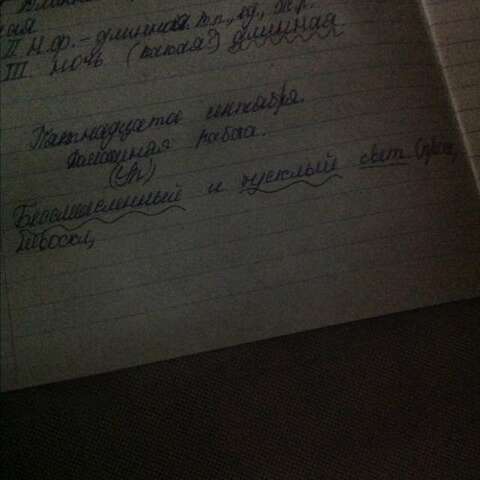 ная
II Н.ф. - длинная. Им.п., ед., ж.р.
III ночь (какая?) длинная
Пятнадцатое сентября.
Домашняя работа.
Бессмысленный и тусклый свет